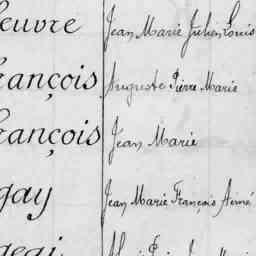 euvre Jean Marie Julien Louis
rançois Auguste Pierre Marie
rançois Jean Marie
gay Jean Marie François Aimé